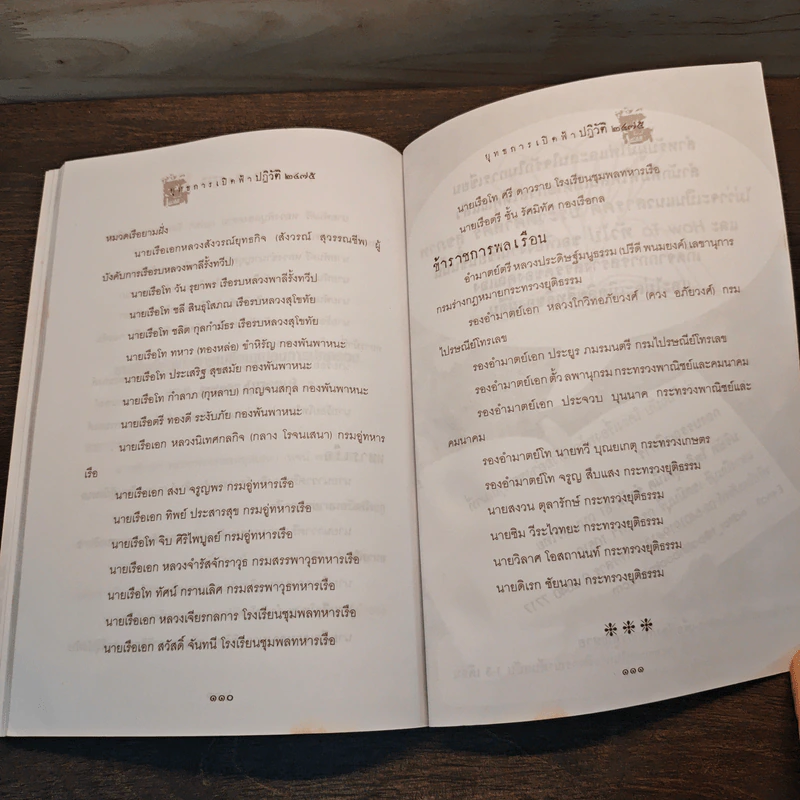 ยุทธการเปิดฟ้า ปฏิวัติ ๒๔๗๕
หมวดเรือยามฝั่ง
นายเรือเอกหลวงสังวรณ์ยุทธกิจ (สังวรณ์ สุวรรณชีพ) ผู้
บังคับการเรือรบหลวงพาลีรั้งทวีป)
นายเรือโท วัน รุยาพร เรือรบหลวงพาลีรั้งทวีป
นายเรือโท ชลี สินธุโสภณ เรือรบหลวงสุโขทัย
นายเรือโท ชลิต กุลกำม์ธร เรือรบหลวงสุโขทัย
นายเรือโท ทหาร (ทองหล่อ) ขำหิรัญ กองพันพาหนะ
นายเรือโท ประเสริฐ สุขสมัย กองพันพาหนะ
นายเรือโท กำลาภ (กุหลาบ) กาญจนสกุล กองพันพาหนะ
นายเรือตรี ทองดี ระงับภัย กองพันพาหนะ
นายเรือเอก หลวงนิเทศกลกิจ (กลาง โรจนเสนา) กรมอู่ทหาร
เรือ
นายเรือเอก สงบ จรูญพร กรมอู่ทหารเรือ
นายเรือเอก ทิพย์ ประสารสุข กรมอู่ทหารเรือ
นายเรือโท จิบ ศิริไพบูลย์ กรมอู่ทหารเรือ
นายเรือเอก หลวงจำรัสจักราวุธ กรมสรรพาวุธทหารเรือ
นายเรือโท ทัศน์ กรานเลิศ กรมสรรพาวุธทหารเรือ
นายเรือเอก หลวงเจียรกลการ โรงเรียนชุมพลทหารเรือ
นายเรือเอก สวัสดิ์ จันทนี โรงเรียนชุมพลทหารเรือ
๑๑๐
ยุทธการเปิดฟ้า ปฏิวัติ ๒๔๗๕
นายเรือโท ศรี ดาวราย โรงเรียนชุมพลทหารเรือ
นายเรือตรี ชั้น รัศมิทัศ กองเรือกล
ข้าราชการพลเรือน
อำมาตย์ตรี หลวงประดิษฐ์มนูธรรม (ปรีดี พนมยงค์) เลขานุการ
กรมร่างกฎหมายกระทรวงยุติธรรม
รองอำมาตย์เอก หลวงโกวิทอภัยวงศ์ (ควง อภัยวงศ์) กรม
ไปรษณีย์โทรเลข
รองอำมาตย์เอก ประยูร ภมรมนตรี กรมไปรษณีย์โทรเลข
รองอำมาตย์เอก ตั้ว ลพานุกรม กระทรวงพาณิชย์และคมนาคม
รองอำมาตย์เอก ประจวบ บุนนาค กระทรวงพาณิชย์และ
คมนาคม
รองอำมาตย์โท นายทวี บุณยเกตุ กระทรวงเกษตร
รองอำมาตย์โท จรูญ สืบแสง กระทรวงยุติธรรม
นายสงวน ตุลารักษ์ กระทรวงยุติธรรม
นายซิม วีระไวทยะ กระทรวงยุติธรรม
นายวิลาศ โอสถานนท์ กระทรวงยุติธรรม
นายดิเรก ชัยนาม กระทรวงยุติธรรม
๑๑๑